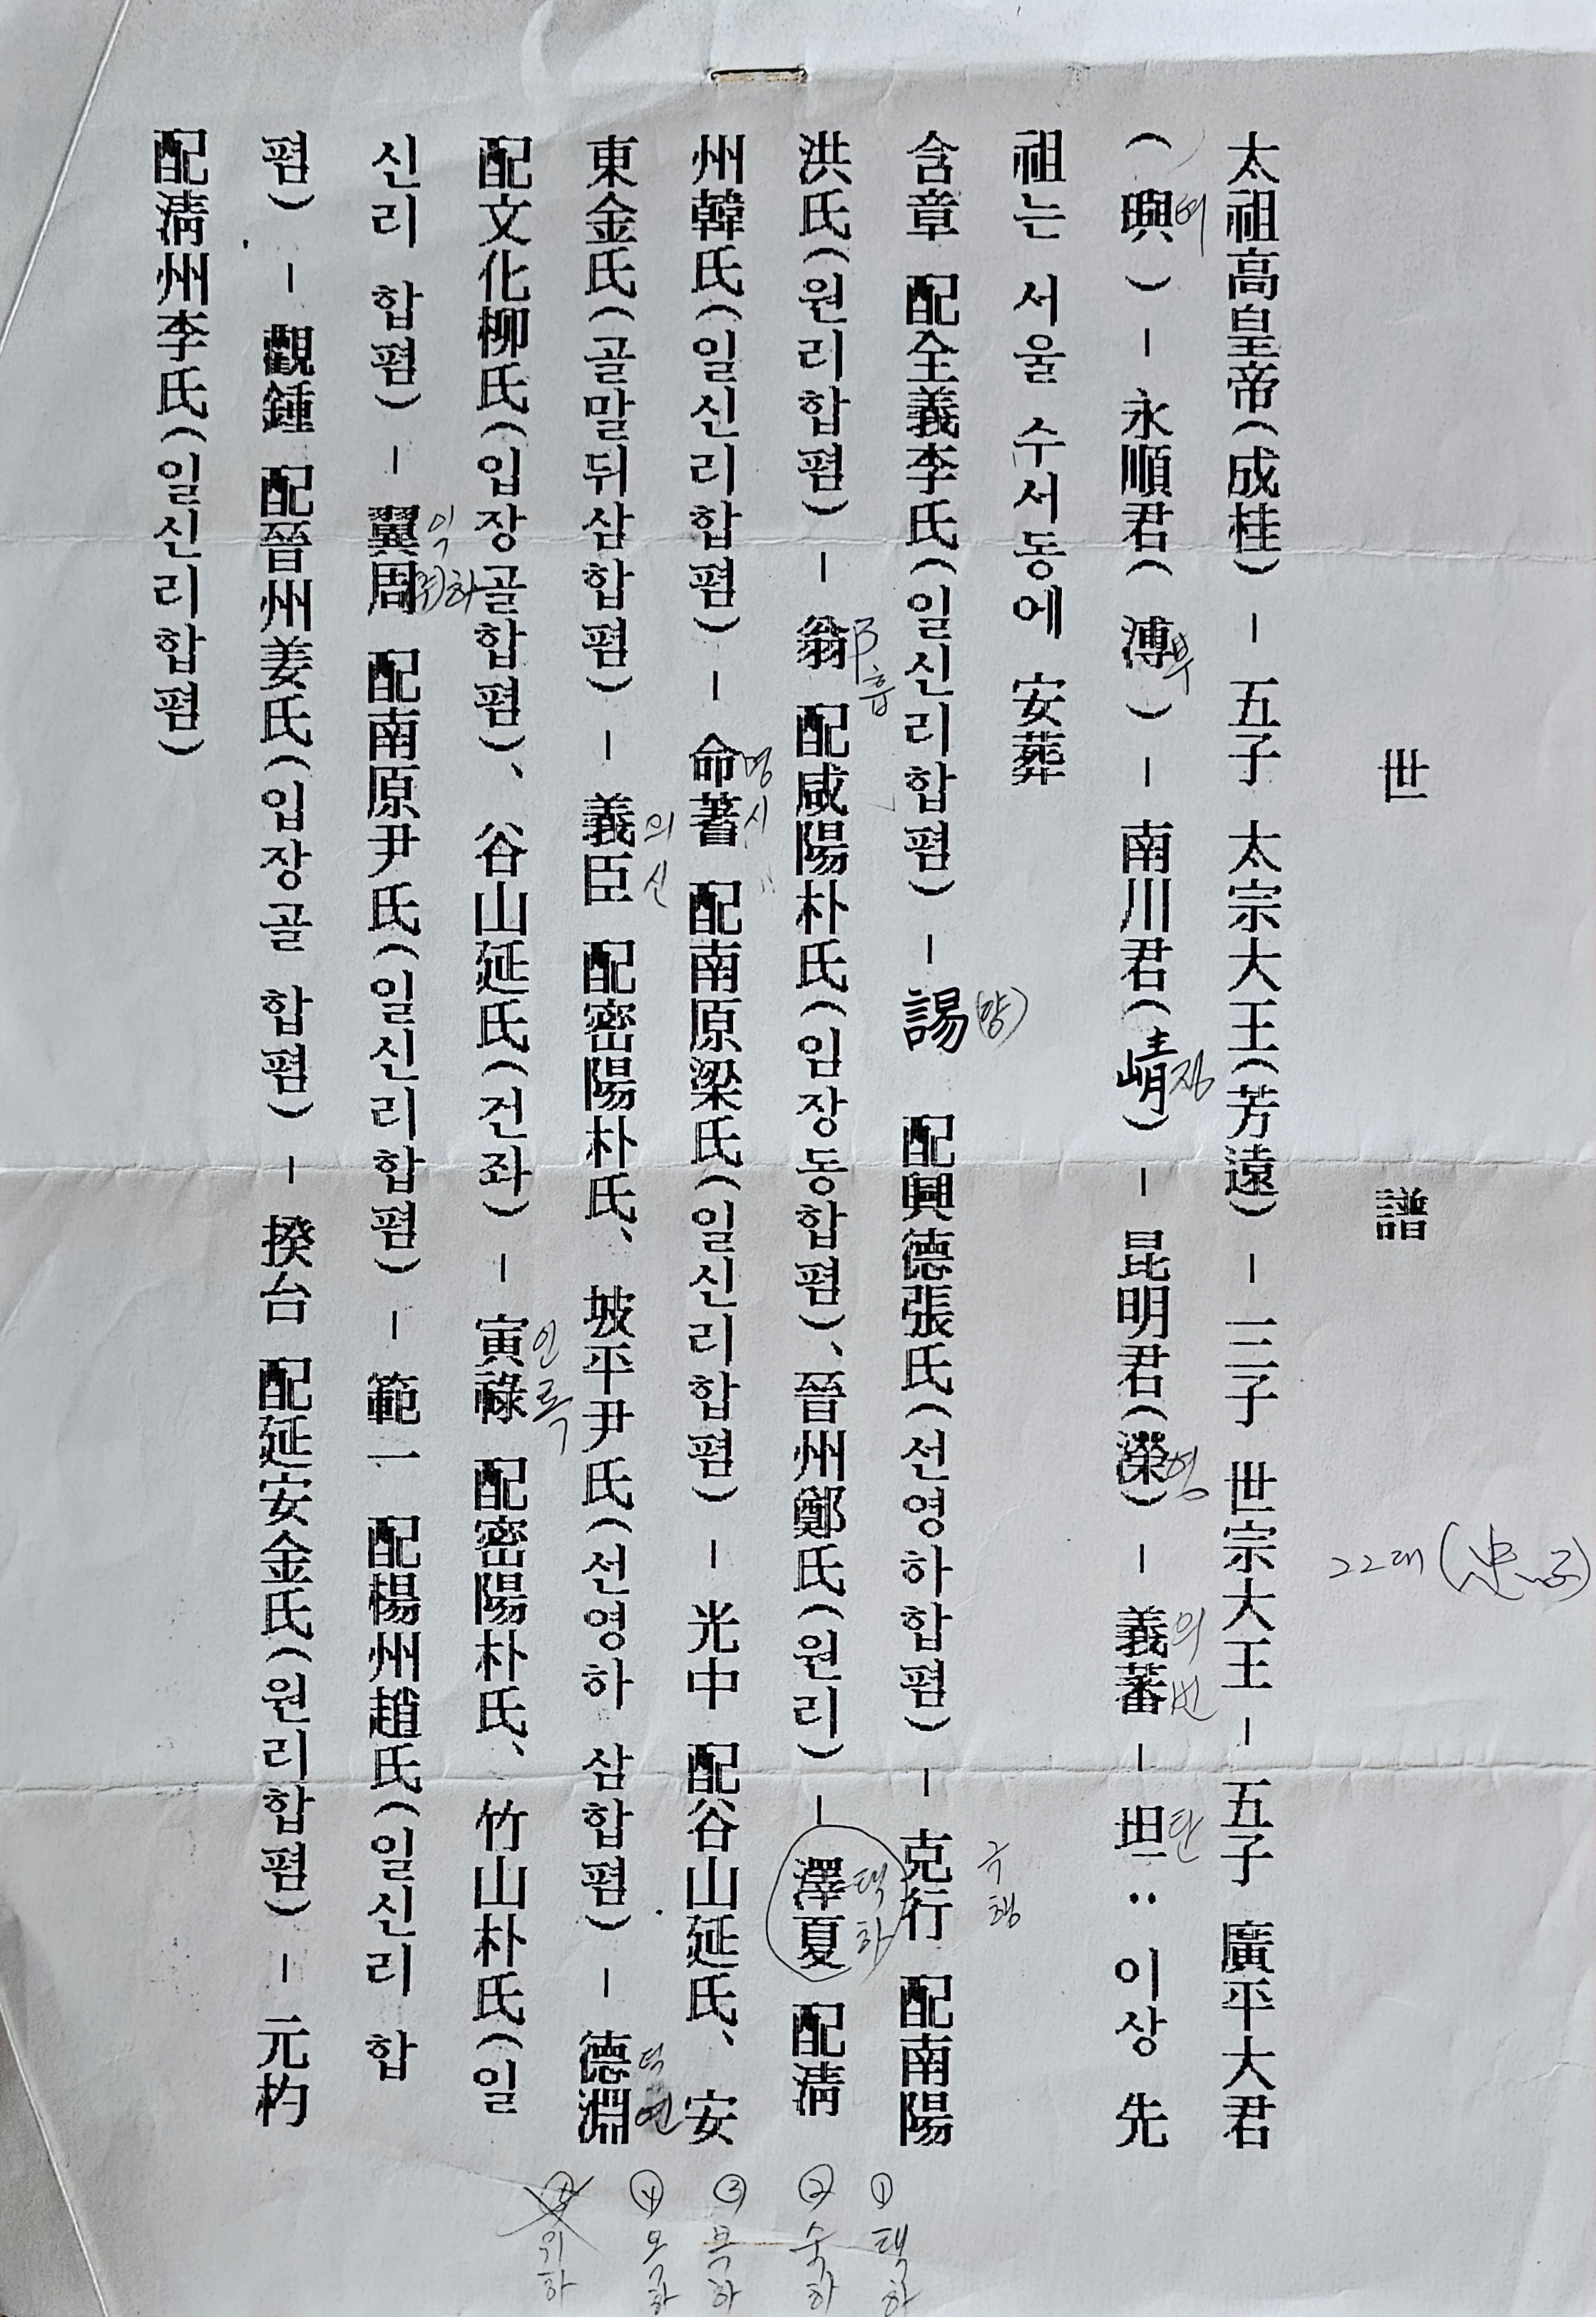 世 譜
22대 (忠
太祖高皇帝(成桂) - 五子 太宗大王(芳遠) - 三子 世宗大王 - 五子 廣平大君
(璵) - 永順君(溥) - 南川君(崝) - 昆明君(濚) - 義蕃 - 坦 : 이상 先
여 부 정 영 의 번 탄
祖는 서울 수서동에 安葬
含章 配全義李氏(일신리합폄) - 諹 配興德張氏(선영하합폄) - 克行 配南陽
(양) 극 행
洪氏(원리합폄) - 翁 配咸陽朴氏(입장동합폄)、晉州鄭氏(원리) - 澤夏 配淸
흡 택 하
州韓氏(일신리합폄) - 命蓍 配南原梁氏(일신리합폄) - 光中 配谷山延氏、安
명 시
東金氏(골말뒤삼합폄) - 義臣 配密陽朴氏、坡平尹氏(선영하 삼합폄) - 德淵
의 신 덕 연
配文化柳氏(입장골합폄)、谷山延氏(건좌) - 寅祿 配密陽朴氏、竹山朴氏(일
인 록
신리 합폄) - 翼周 配南原尹氏(일신리합폄) - 範一 配楊州趙氏(일신리 합
익 주
폄) - 觀鍾 配晉州姜氏(입장골 합폄) - 揆台 配延安金氏(원리합폄) - 元杓
配淸州李氏(일신리합폄)
① 택하
② 숙하
③ 복하
④ 모하
위하